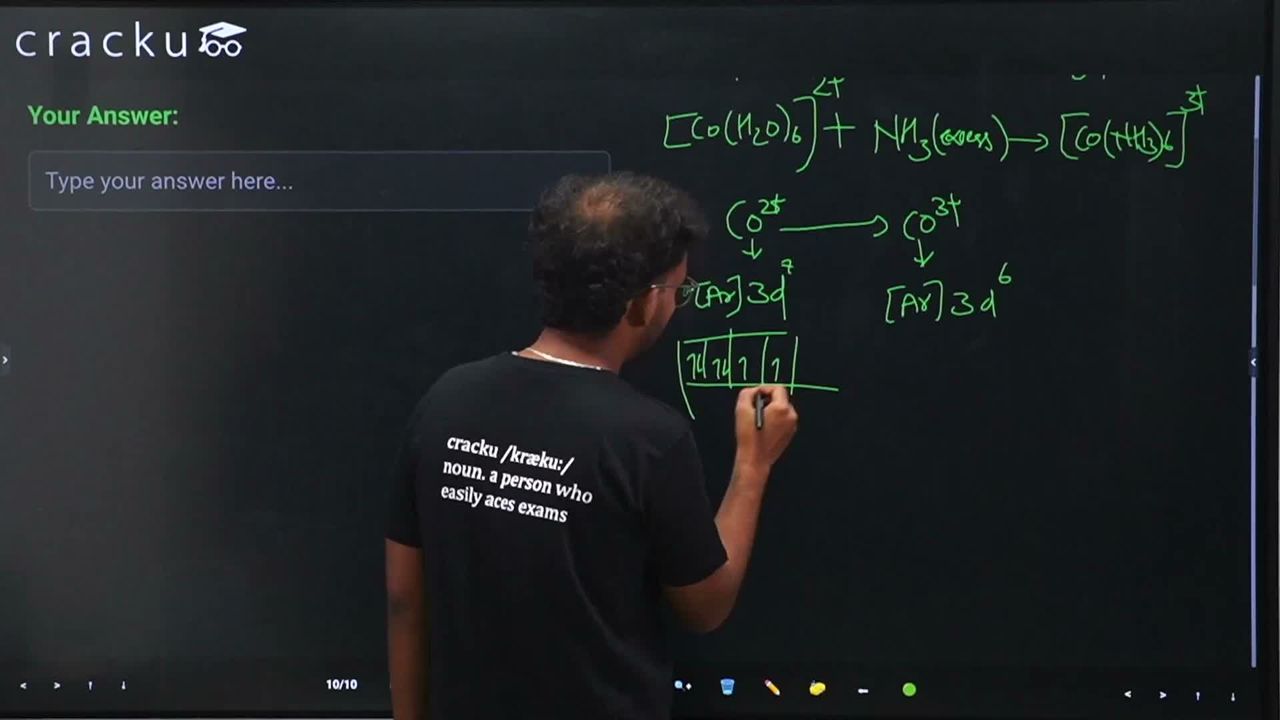 cracku
Your Answer:
Type your answer here...
[Co(H2O)6]2+ + NH3(excess) → [Co(NH3)6]3+
Co2+ → Co3+
↓ ↓
[Ar]3d7 [Ar]3d6
1L 1L 1 1
cracku /kræku:/
noun. a person who
easily aces exams
10/10